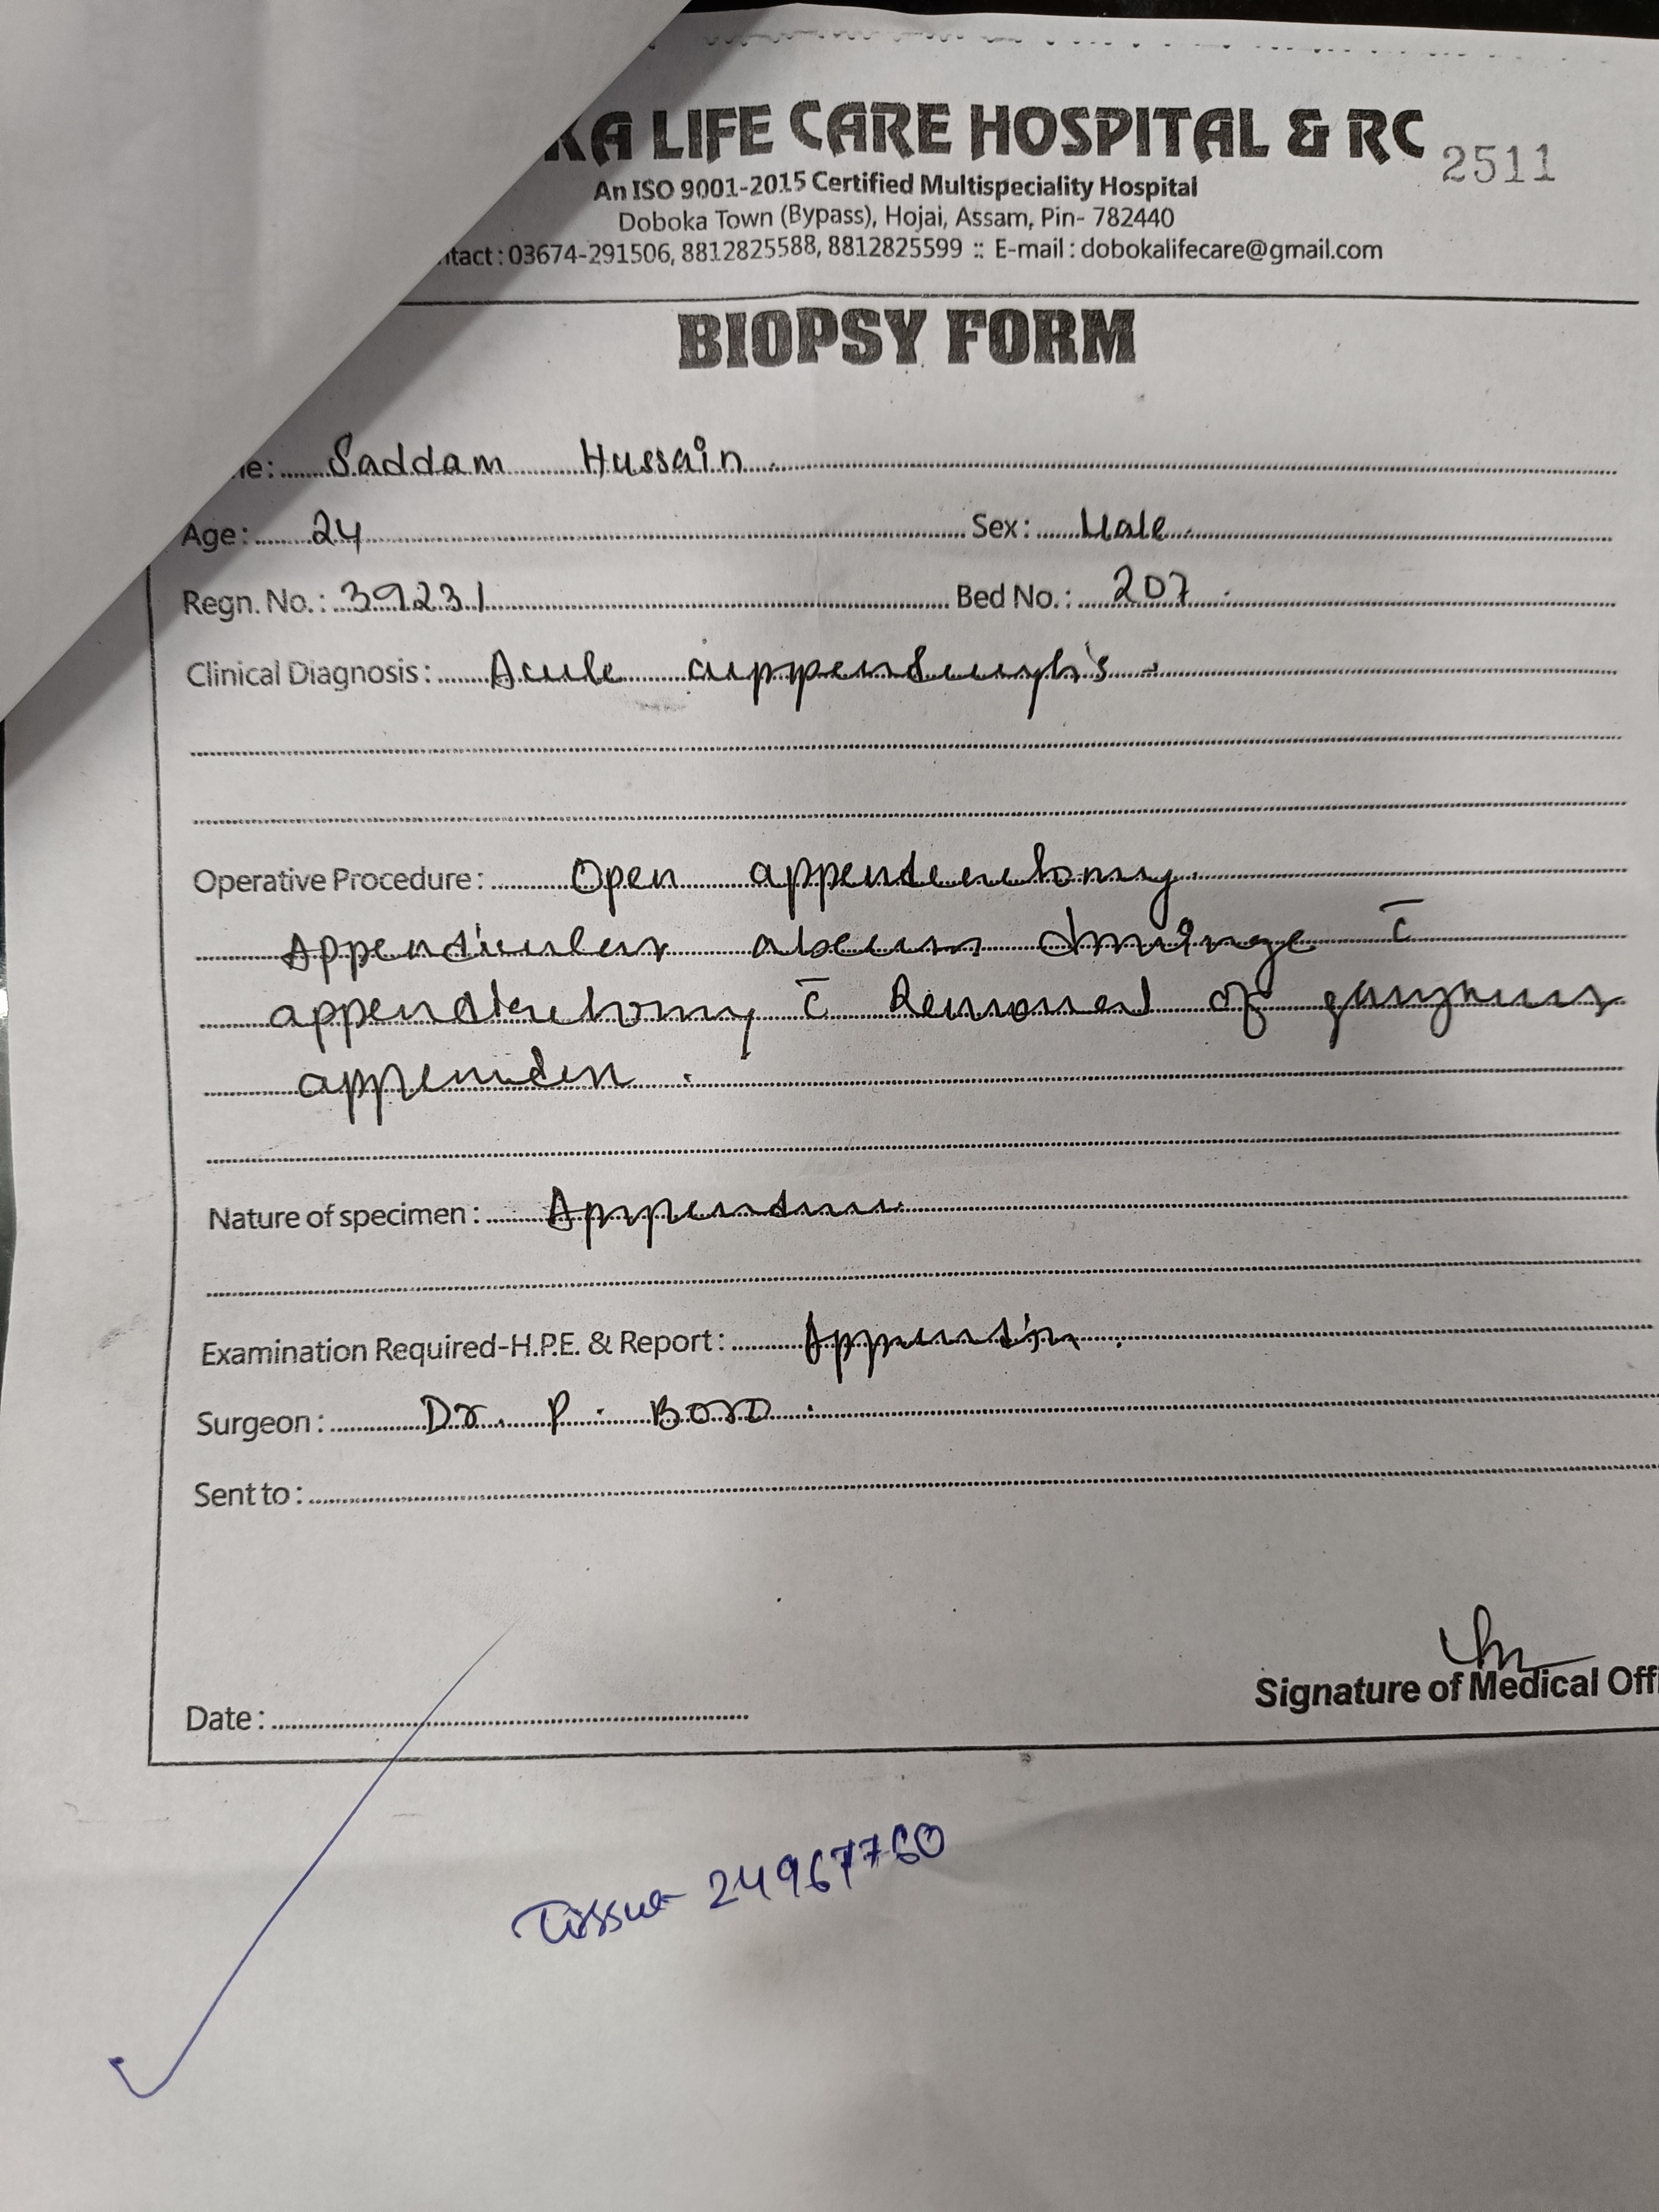 KA LIFE CARE HOSPITAL & RC 2511
An ISO 9001-2015 Certified Multispeciality Hospital
Doboka Town (Bypass), Hojai, Assam, Pin- 782440
ntact : 03674-291506, 8812825588, 8812825599 :: E-mail : dobokalifecare@gmail.com
BIOPSY FORM
e: Saddam Hussain
Age: 24 Sex: Male
Regn. No.: 39231 Bed No.: 207
Clinical Diagnosis: Acute
Operative Procedure: Open appendectomy
Appendicular abscess drainage c̄
appendectomy c̄ Removal of
appendix.
Nature of specimen: Appendix
Examination Required-H.P.E. & Report: Appendix.
Surgeon: Dr. P. Boro.
Sent to:
Signature of Medical Offi
Date:
Tissue- 24967760